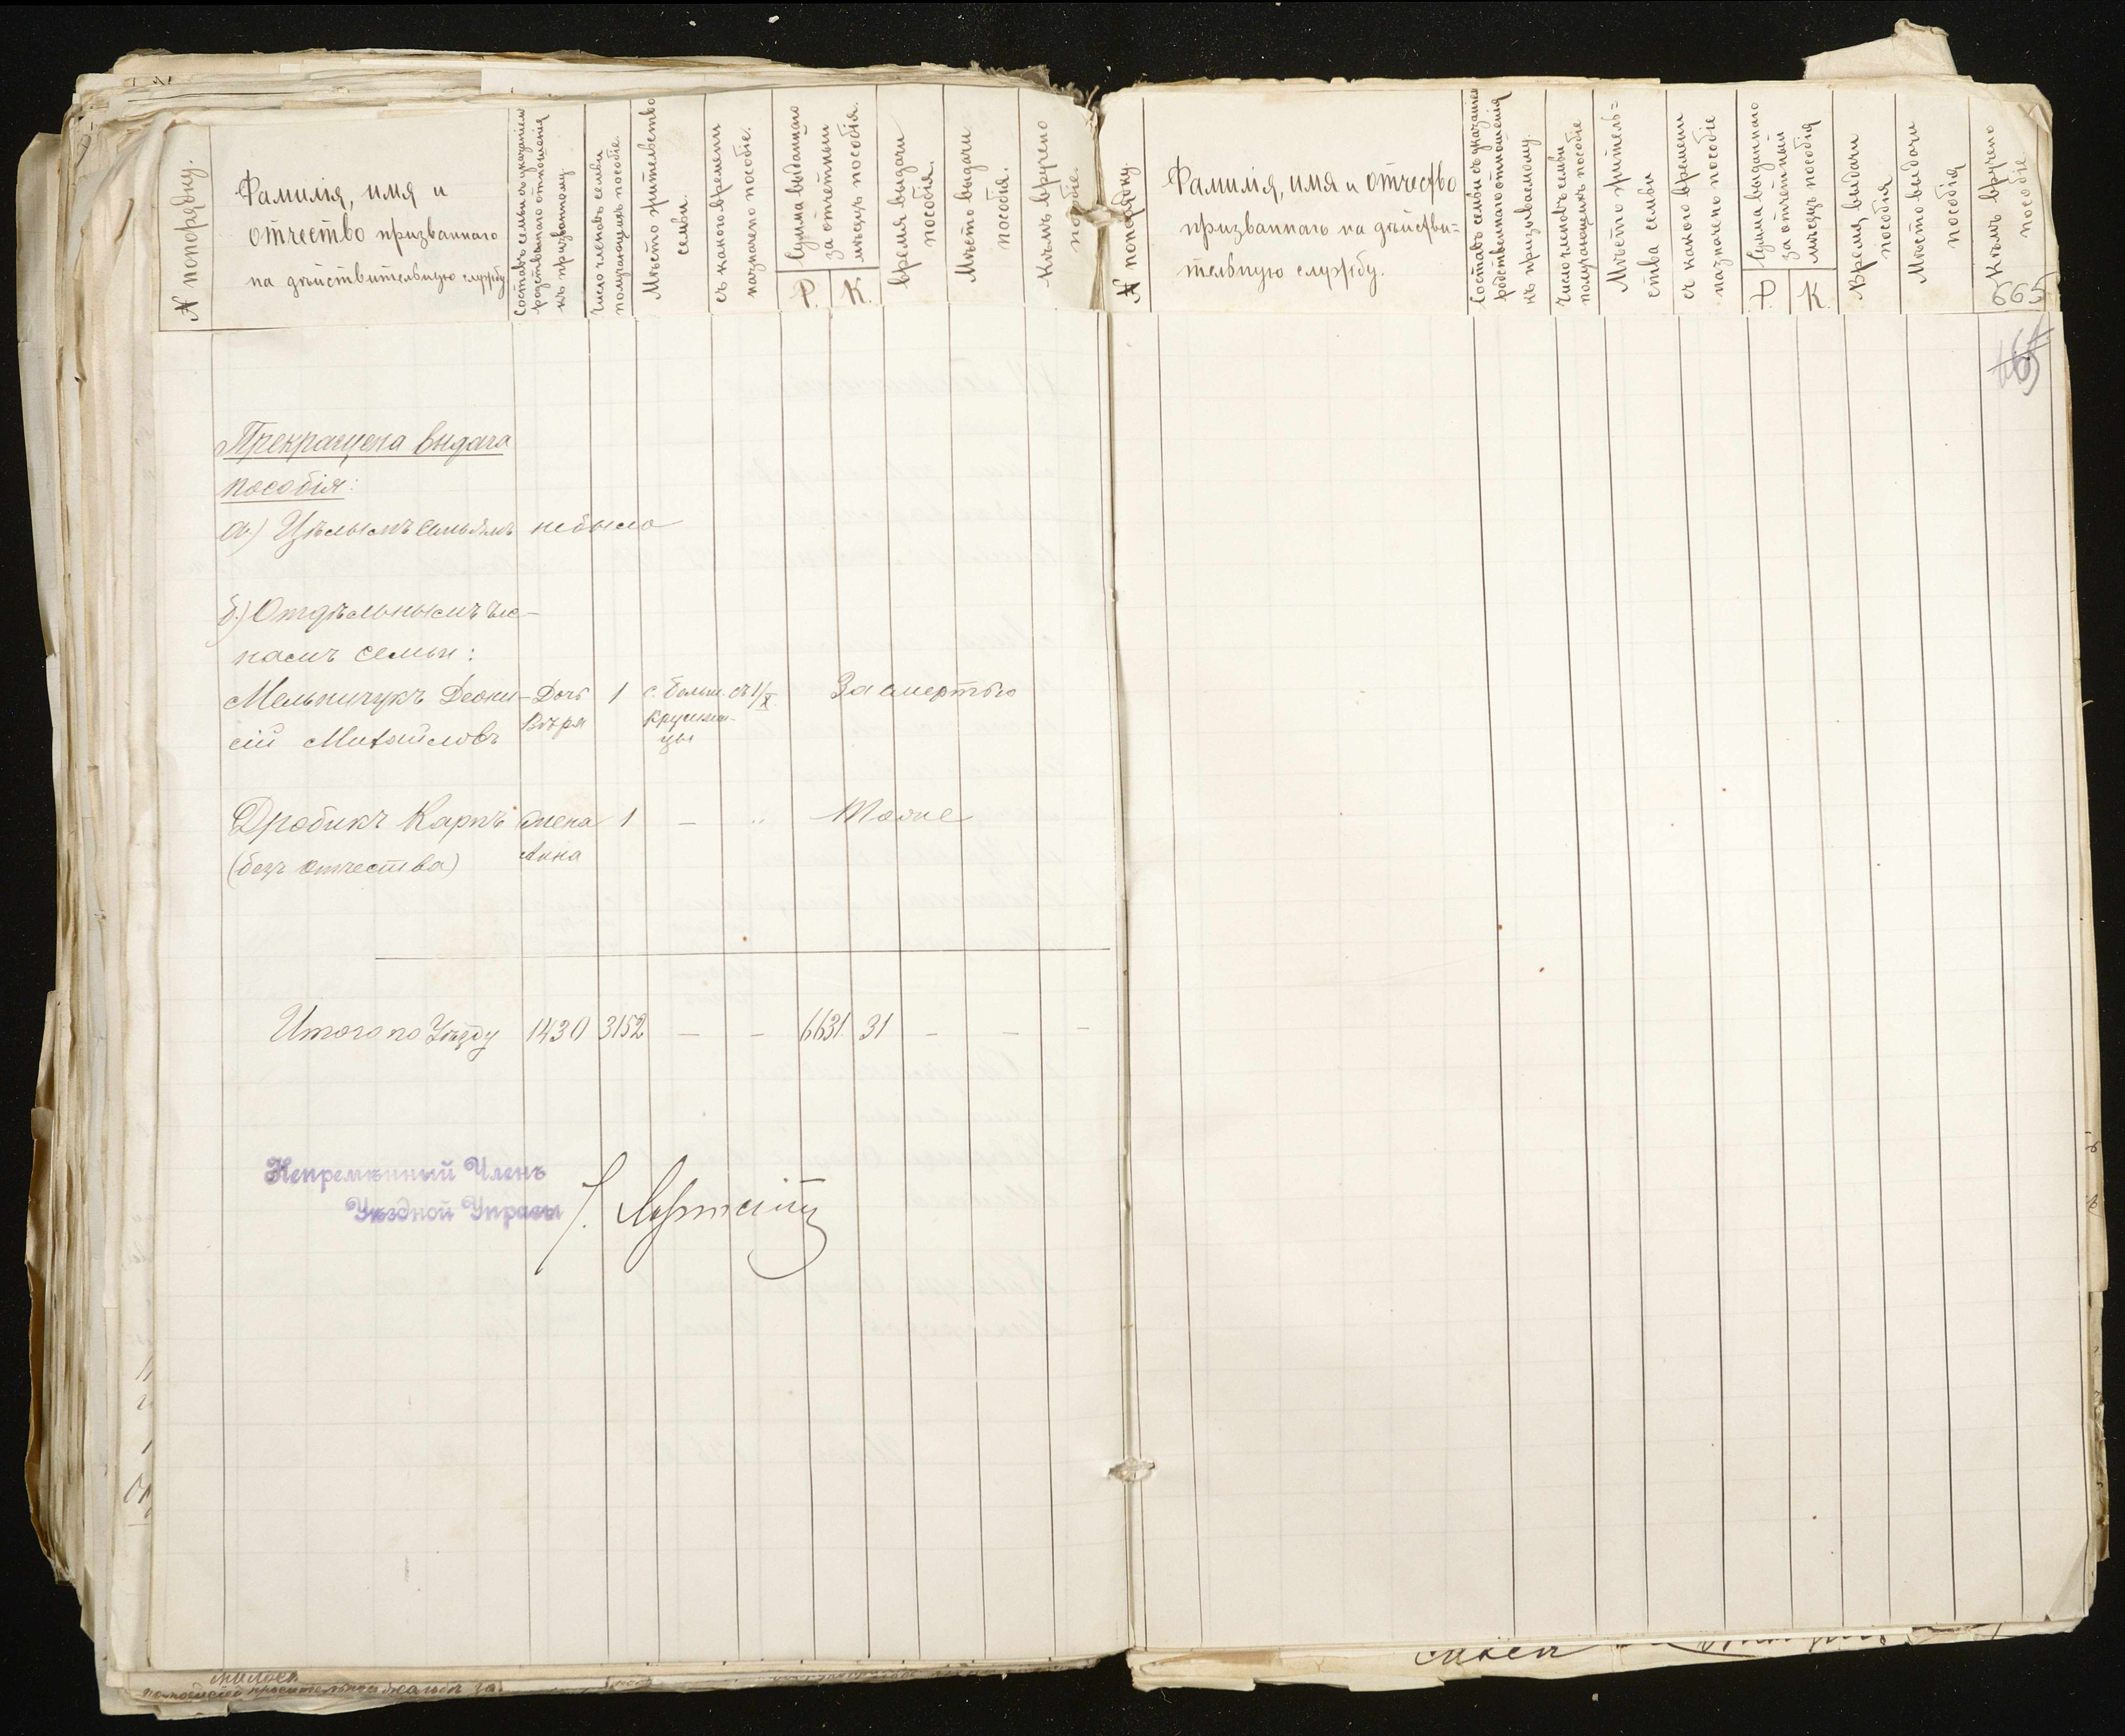 № попорядку.
Фамилія, имя и
отчество призваннаго
на дѣйствительную службу
Составъ семьи съ указаніемъ
родственнаго отношенія
къ призванному.
Число членовъ семьи
получающихъ пособіе.
Мѣсто жительство
семьи.
съ какого времени
назначено пособіе.
Сумма выданнаго
за отчетный
мѣсяцъ пособія.
Р. К.
время выдачи
пособія.
Мѣсто выдачи
пособія.
Кѣмъ вручено
пособіе.
Прекращена выдача
пособія:
а) Цѣлымъ семьямъ не было
б) Отдѣльнымъ чле-
намъ семьи:
Мельничукъ Деони- Дочь 1 с. Больш. съ 1/X За смертью
сій Михайловъ Вѣра Крушлин-
цы
Дробикъ Карпъ жена 1 — „ Тоже
(безъ отчества) Анна
Итого по Уѣзду 1430 3152 — — 6631 31 — — —
Непремѣнный Членъ
Уѣздной Управы
№ попорядку
Фамилія, имя и отчество
призваннаго на дѣйстви=
тельную службу.
Составъ семьи съ указаніемъ
родственнаго отношенія
къ призываемому.
Число членовъ семьи
получающихъ пособіе
Мѣсто житель=
ства семьи
съ какого времени
назначено пособіе
Сумма выданнаго
за отчетный
мѣсяцъ пособія
Р. К.
Время выдачи
пособія
Мѣсто выдачи
пособія
Кѣмъ вручено
пособіе
665